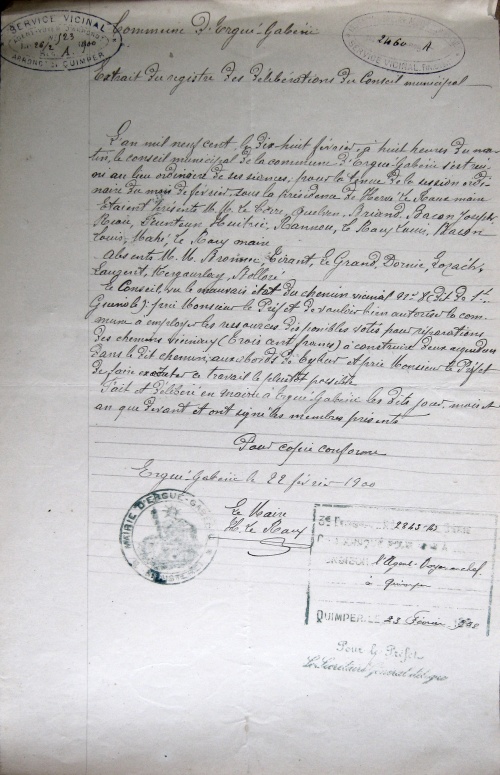 SERVICE VICINAL
N° 523
du 26/2 1900
A
ARRONDT DE QUIMPER
Commune D'Ergué-Gabéric
2460 A
SERVICE VICINAL
Extrait du registre des délibérations du Conseil municipal
L'an mil neuf cent, le dix-huit février, à huit heures du ma-
tin, le conseil municipal de la commune d'Ergué-Gabéric s'est réu-
ni au lieu ordinaire de ses séances, pour la tenue de la session ordi-
naire du mois de février sous la Présidence de Hervé Le Roux maire
Etaient présents M.M. Le Corre, Huitric, Mahé, le Roux maire
Absents M.M. le Grand,
Laurent, Nicolas
Le Conseil, vu le mauvais état du chemin vicinal
prie Monsieur le Préfet de vouloir bien autoriser la com-
mune à employer les ressources disponibles votés pour réparations
des chemins vicinaux (Trois cent francs) à construire deux aqueducs
dans le dit chemin, aux abords de et prie Monsieur le Préfet
de faire exécuter ce travail le plus tôt possible
Fait et délibéré en mairie à Ergué-Gabéric les dits jour, mois et
an que devant et ont signé les membres présents
Pour copie conforme
Ergué-Gabéric le 22 février 1900
Le Maire
H. Le Roux
MAIRIE D'ERGUÉ-GABÉRIC
FINISTERE
2843
l'Agent-Voyer en chef
à Quimper
QUIMPER, LE 23 Février
Pour le Préfet
Le Secrétaire général délégué